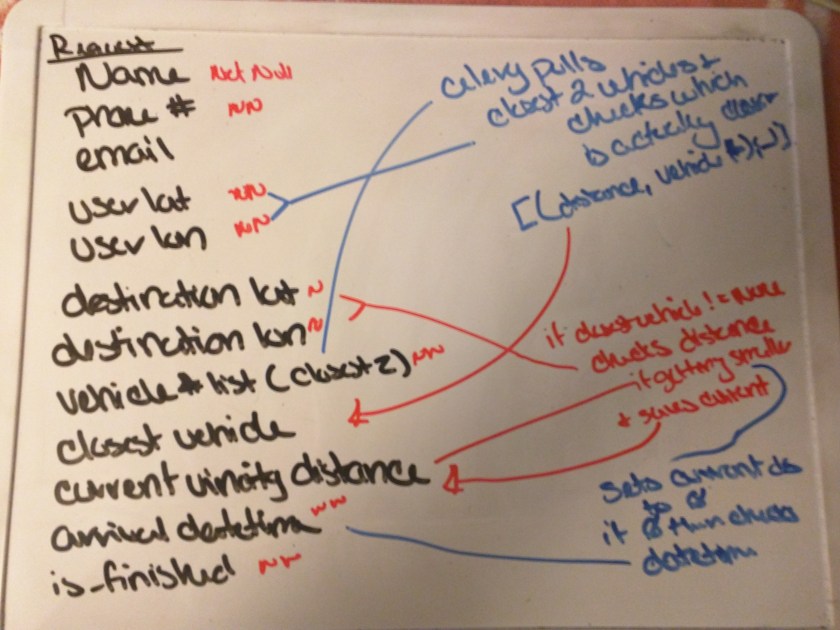 Request
Name Not Null
Phone # NN
email
user lat NN
user lon NN
destination lat N
destination lon N
vehicle # list (closest 2) NN
closest vehicle
current vincity distance
arrival datetime NN
is_finished NN
celery pulls
closest 2 vehicles +
checks which
is actually closer
[(distance, vehicle #),(-)]
if closest vehicle != None
checks distance
if getting smaller
+ saves current
sets current dis
to 0
if 0 then checks
datetime